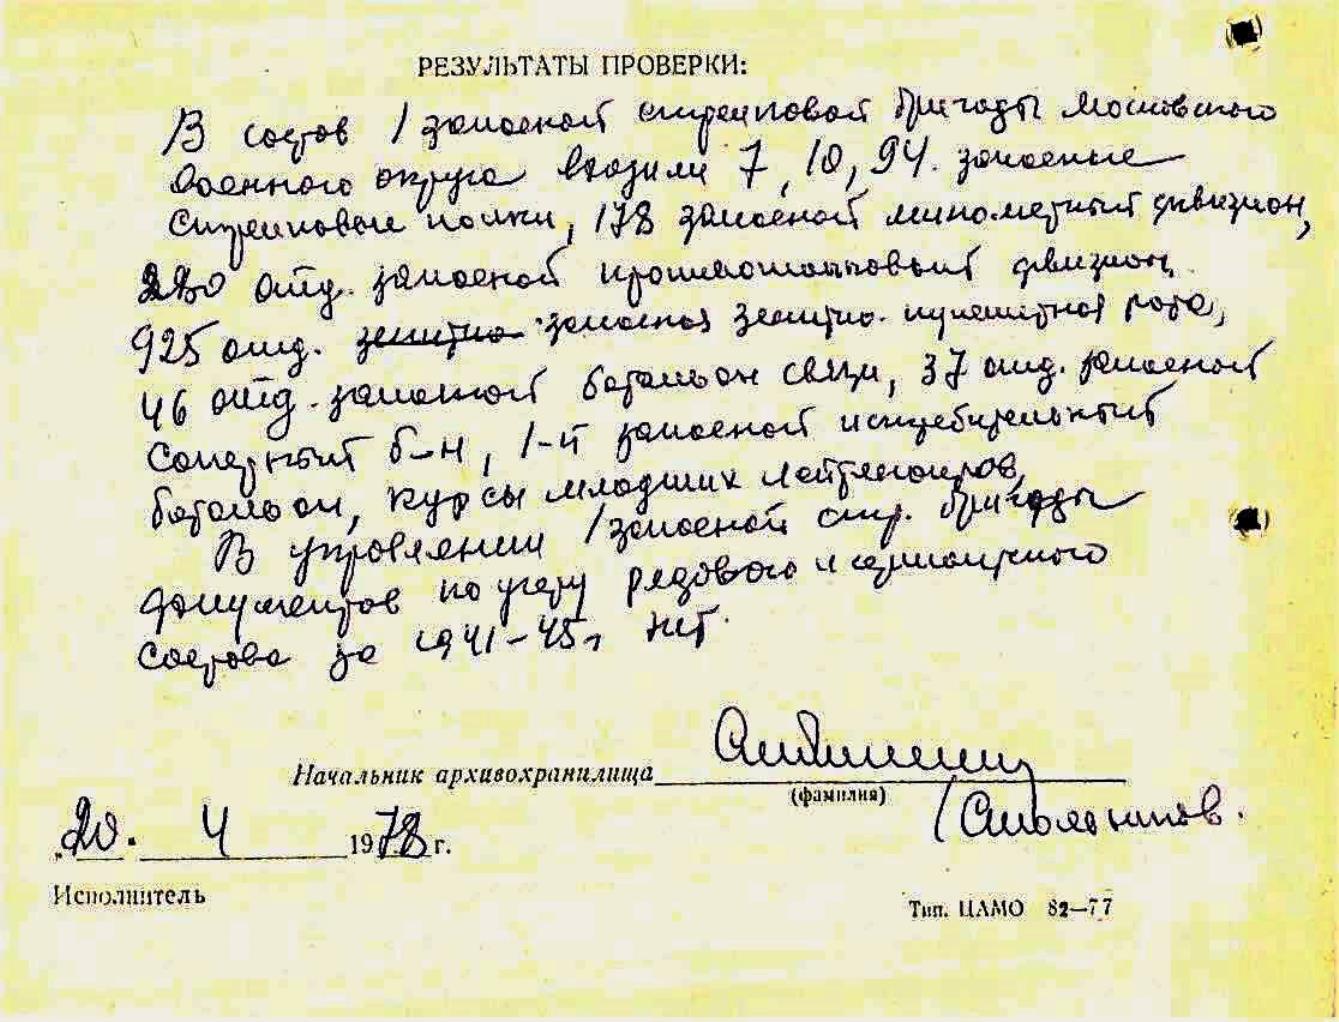 РЕЗУЛЬТАТЫ ПРОВЕРКИ:
В состав 1 запасной стрелковой бригады Московского
военного округа входили 7, 10, 94. запасные
стрелковые полки, 178 запасной минометный дивизион,
220 отд. запасной противотанковый дивизион
925 отд. зенитно запасная зенитно. пулеметная рота,
46 отд. запасной батальон связи, 37 отд. запасной
саперный б-н, 1-й запасной истребительный
батальон, курсы младших лейтенантов,
В управлении 1 запасной стр. бригады
документов по учету рядового и сержантского
состава за 1941-45г нет.
Начальник архивохранилища
(фамилия)
„20. 4 1978 г.
Исполнитель
Тип. ЦАМО 82—77